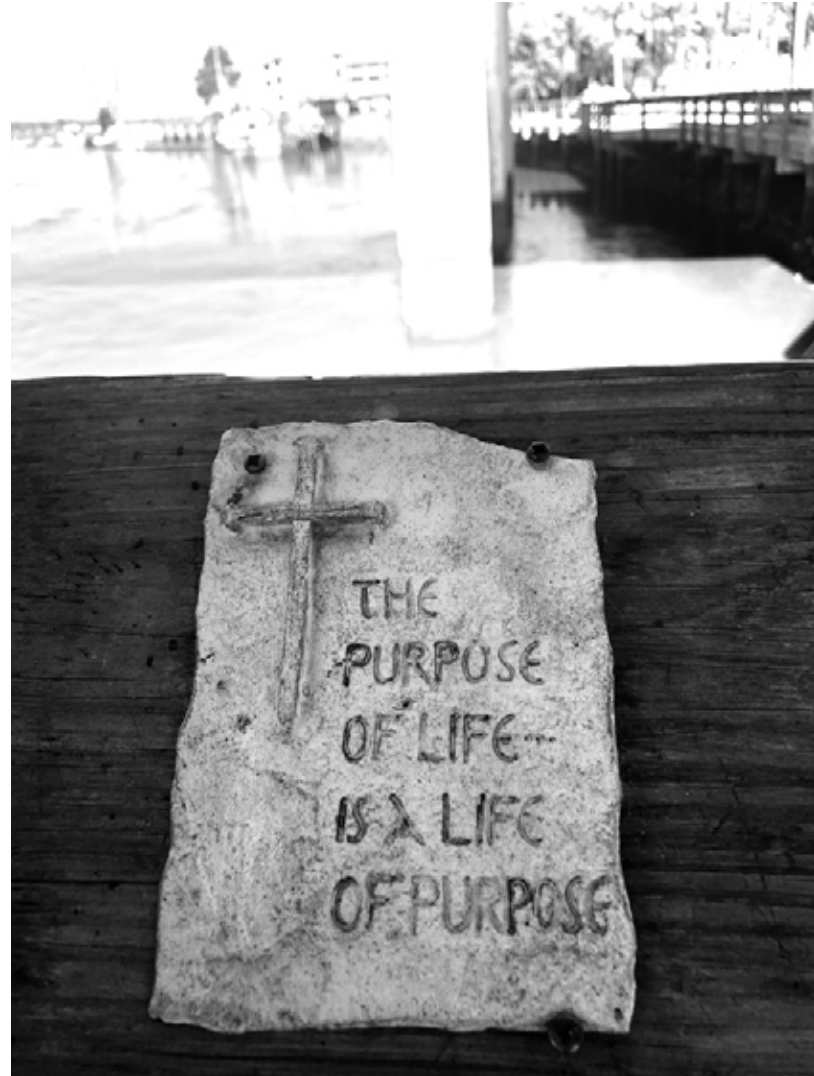 THE
PURPOSE
OF LIFE...
IS A LIFE
OF PURPOSE